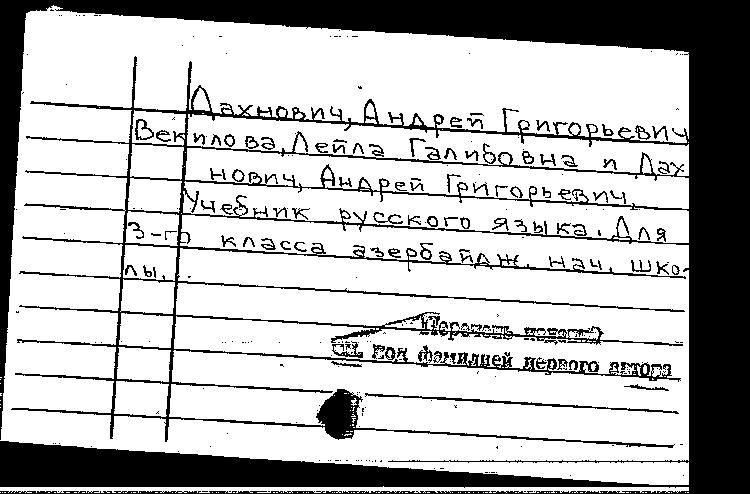 Дахнович, Андрей Григорьевич
Векилова, Лейла Галибовна и Дах
нович, Андрей Григорьевич.
Учебник русского языка. Для
3-го класса азербайдж. нач. шко-
лы...
Перечень изданий
см. под фамилией первого автора